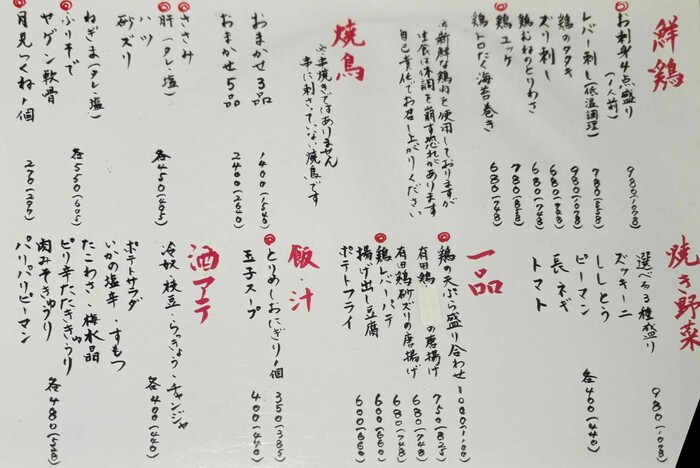 鮮鶏
お刺身4点盛り
(1人前)
980(1078)
レバー刺し(低温調理)
780(858)
鶏のタタキ
980(1078)
ズリ刺し
680(748)
鶏むねのとりわさ
680(748)
鶏ユッケ
780(858)
鶏トロたく海苔巻き
680(748)
※新鮮な鶏肉を使用しておりますが
生食は体調を崩す恐れがあります
自己責任でお召し上がりください
焼鳥
※串焼きではありません
串に刺さっていない焼鳥です
おまかせ3品
1400(1540)
おまかせ5品
2400(2640)
ささみ
肝(タレ・塩)
ハツ
砂ズリ
各450(495)
ねぎま(タレ・塩)
ふりそで
ヤゲン軟骨
各550(605)
月見つくね1個
270(297)
焼き野菜
選べる3種盛り
980(1078)
ズッキーニ
ししとう
ピーマン
長ネギ
トマト
各400(440)
一品
鶏の天ぷら盛り合わせ
1000(1100)
有田鶏
の唐揚げ
750(825)
有田鶏砂ズリの唐揚げ
680(748)
鶏レバーパテ
680(748)
揚げ出し豆腐
600(660)
ポテトフライ
600(660)
飯・汁
とりめしおにぎり1個
350(385)
玉子スープ
400(440)
酒アテ
冷奴・枝豆・らっきょう・チャンジャ
各400(440)
ポテトサラダ
いかの塩辛・すもつ
たこわさ・梅水晶
ピリ辛たたききゅうり
肉みそきゅうり
パリパリピーマン
各480(528)